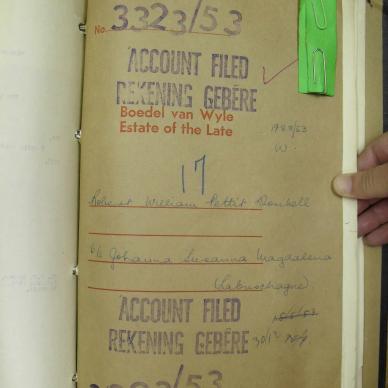 No. 3323/53
ACCOUNT FILED
REKENING GEBÊRE
Boedel van Wyle
Estate of the Late
W.
17
Robert William Pettit
b/b Johanna Susanna Magdalena
(Labuschagne)
ACCOUNT FILED
REKENING GEBÊRE
30/12
3323/53